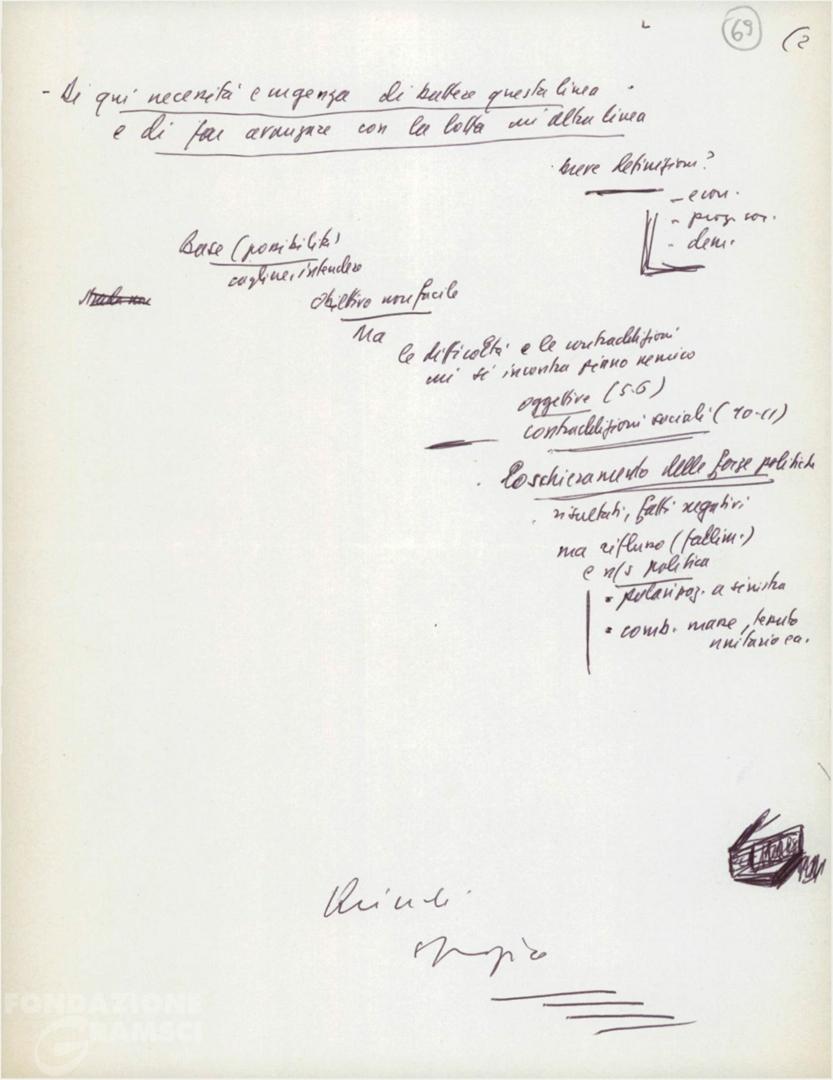 69
(2
- Di qui necessità e urgenza di battere questa linea
e di far avanzare con la lotta un'altra linea
breve definizion?
- econ.
- prog. soc.
- dem.
Base (possibilità)
cogliere, intendere
obiettivo non facile
Ma
le difficoltà e le contraddizioni
cui si incontra piano nemico
oggettive (5-6)
contraddizioni sociali (10-11)
Lo schieramento delle forze politiche
risultati, fatti negativi
ma riflusso (fallim.)
e n/s politica
• polarizzaz. a sinistra
• comb. masse, tessuto
unitario ecc.
Quindi
FONDAZIONE
GRAMSCI